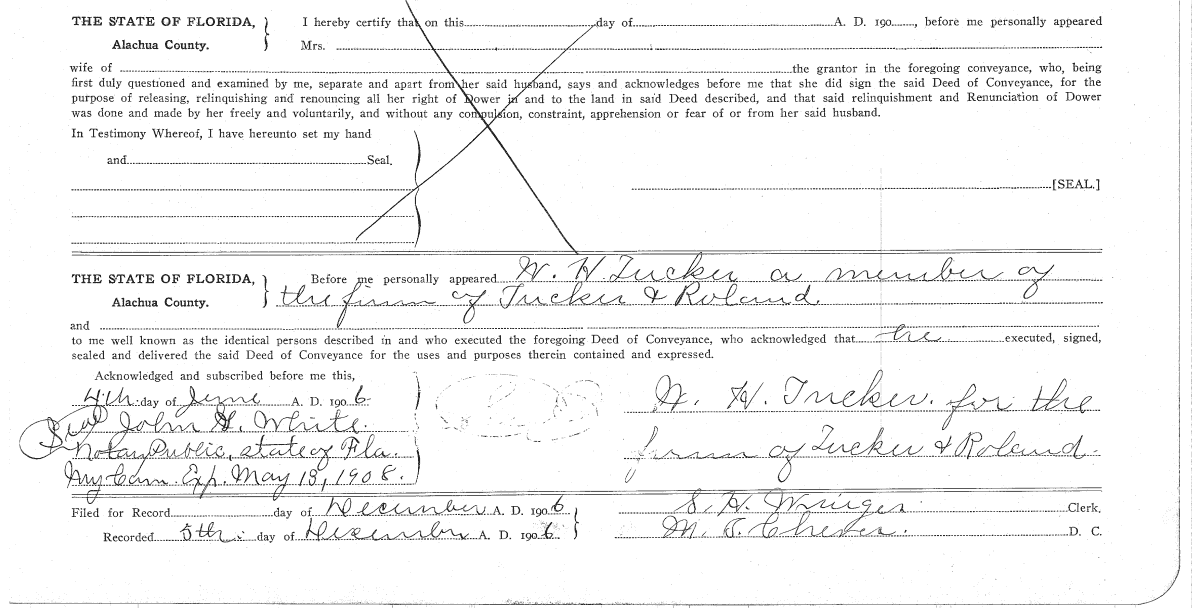 THE STATE OF FLORIDA, I hereby certify that on this day of A. D. 190 , before me personally appeared
Alachua County. Mrs.
wife of the grantor in the foregoing conveyance, who, being
first duly questioned and examined by me, separate and apart from her said husband, says and acknowledges before me that she did sign the said Deed of Conveyance, for the
purpose of releasing, relinquishing and renouncing all her right of Dower in and to the land in said Deed described, and that said relinquishment and Renunciation of Dower
was done and made by her freely and voluntarily, and without any compulsion, constraint, apprehension or fear of or from her said husband.
In Testimony Whereof, I have hereunto set my hand
and Seal.
[SEAL.]
THE STATE OF FLORIDA, Before me personally appeared W. H. Tucker a member of
Alachua County. the firm of Tucker & Roland.
and
to me well known as the identical persons described in and who executed the foregoing Deed of Conveyance, who acknowledged that he executed, signed,
sealed and delivered the said Deed of Conveyance for the uses and purposes therein contained and expressed.
Acknowledged and subscribed before me this,
4th day of June A. D. 190 6
Seal John G. White.
Notary Public, state of Fla.
My Com. Exp. May 13, 1908.
W. H. Tucker. for the
firm of Tucker & Roland.
Filed for Record day of December A. D. 190 6 S. H. Clerk,
Recorded 5th day of December A. D. 190 6 M. D. C.